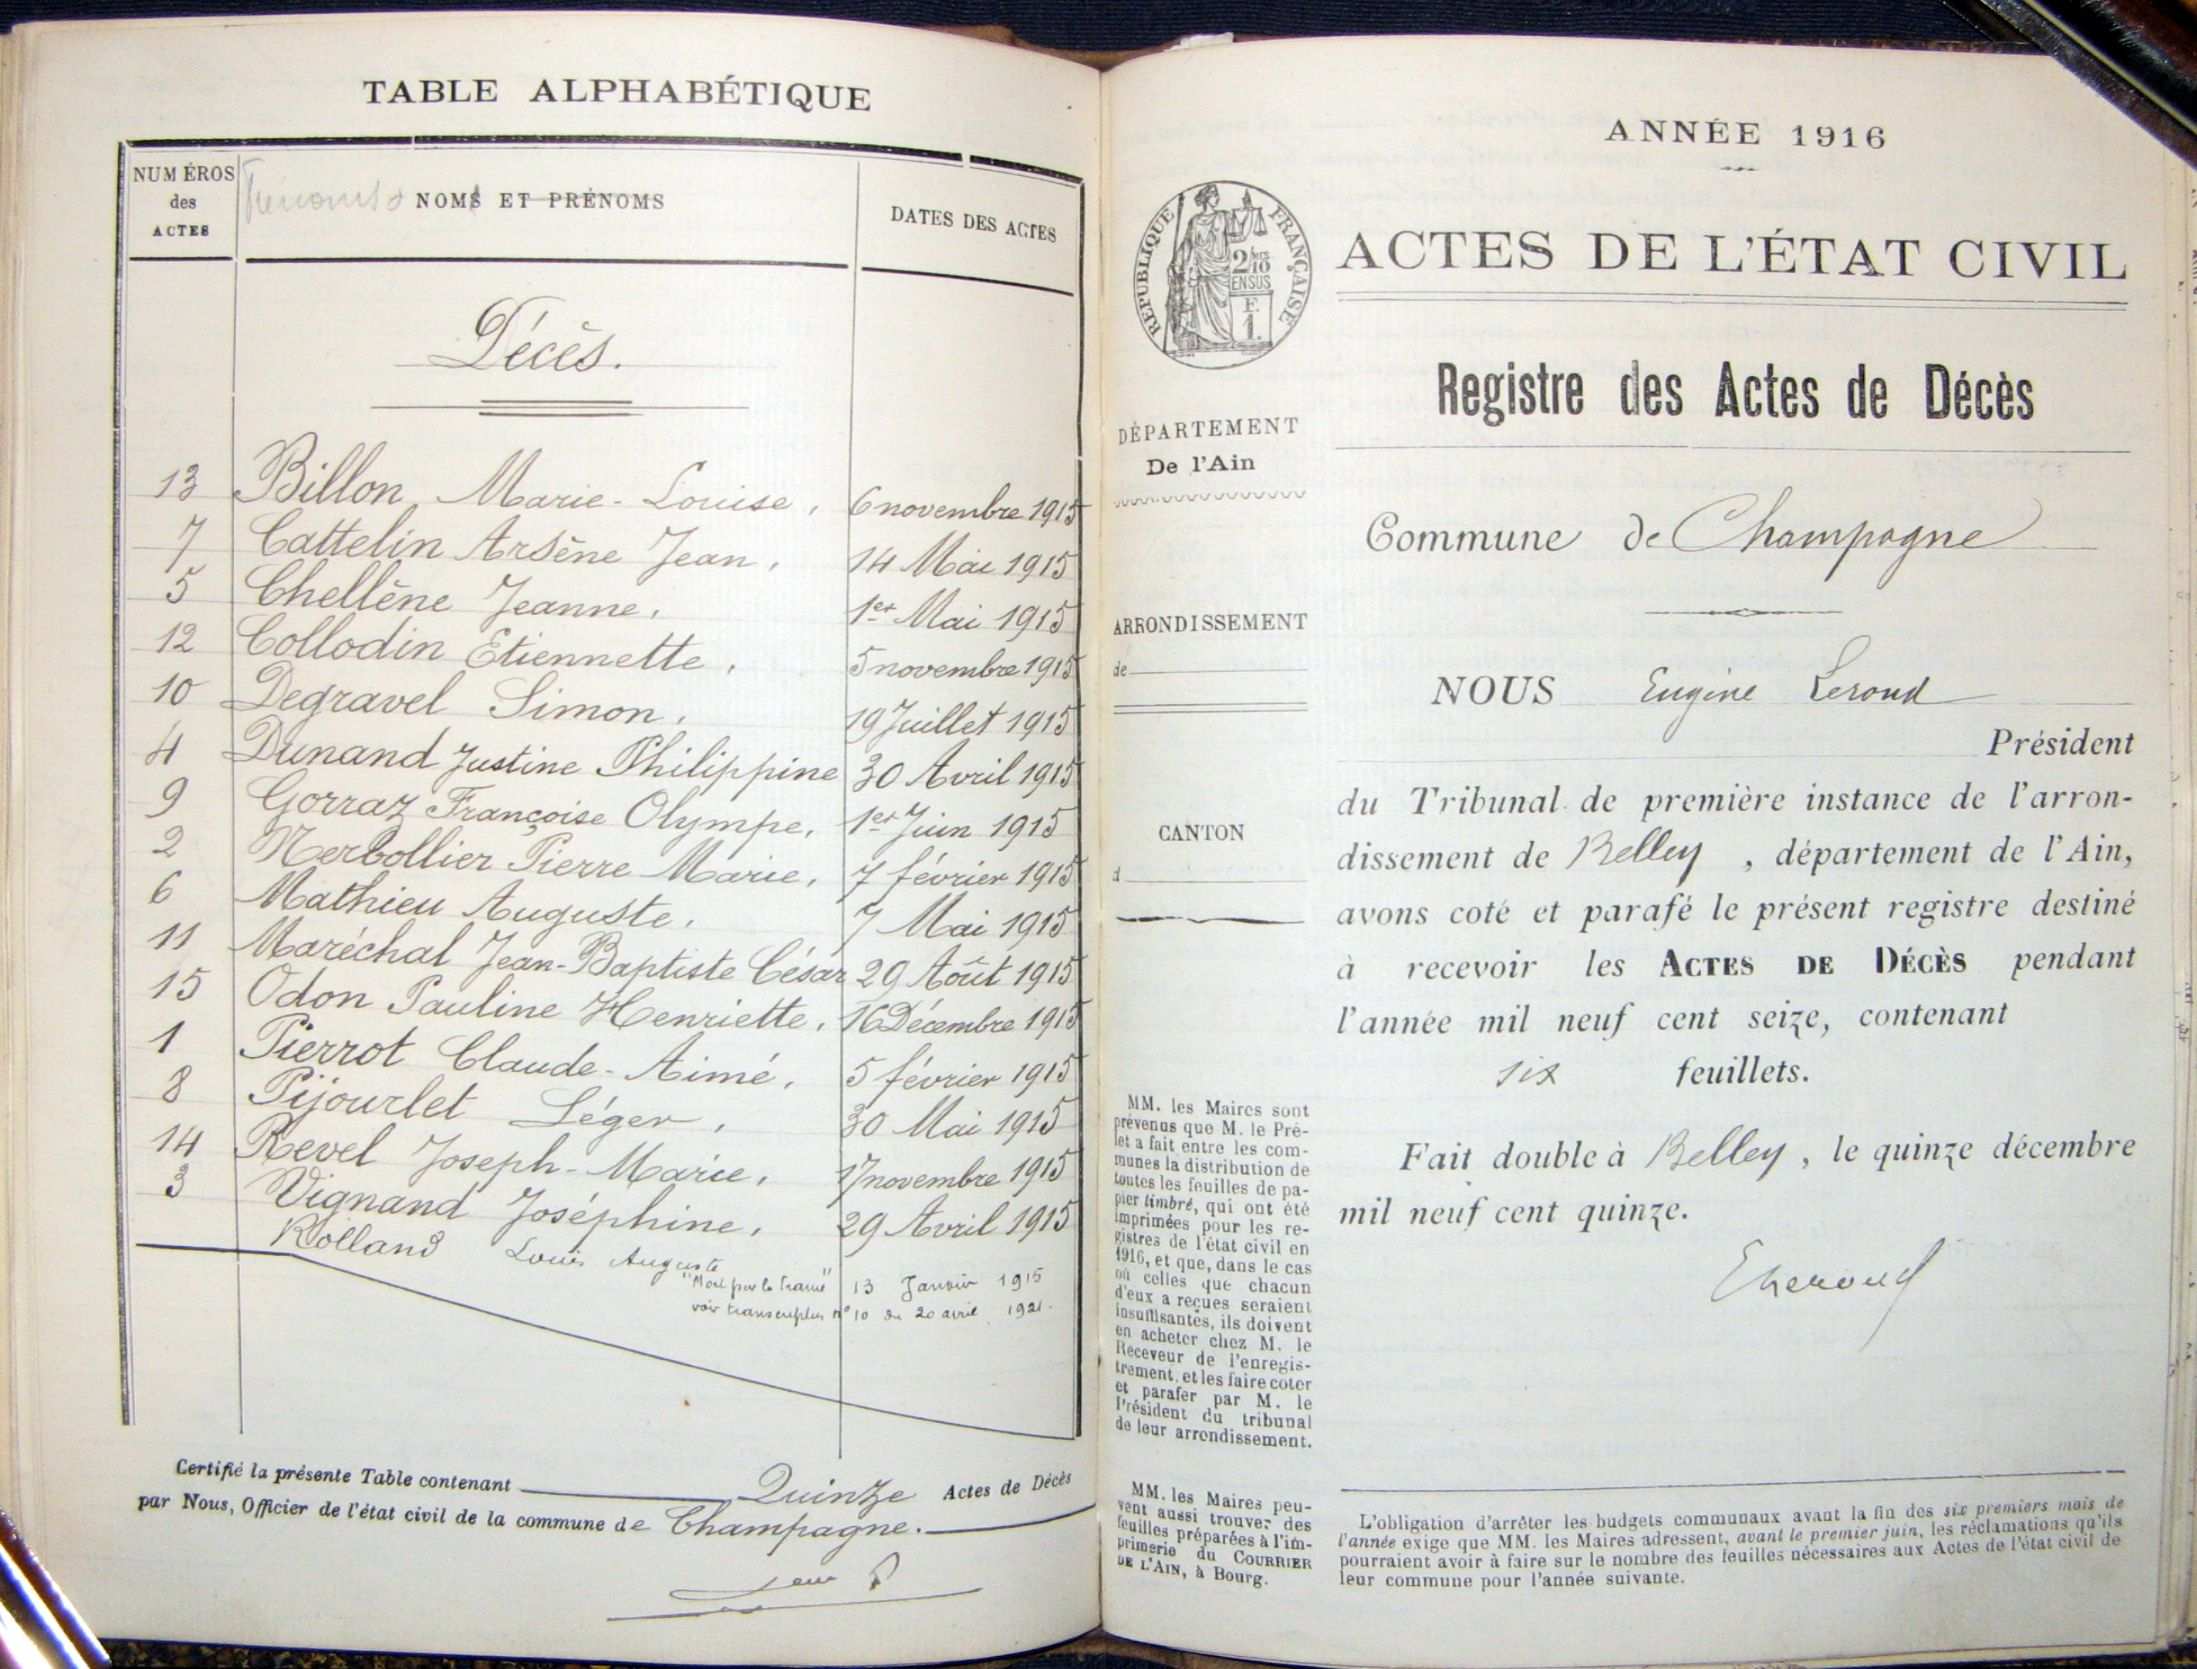 TABLE ALPHABÉTIQUE
NUMÉROS
des
ACTES
Prénoms
NOMS ET PRÉNOMS
DATES DES ACTES
Décès.
13 Billon Marie-Louise, 6 novembre 1915
7 Cattelin Arsène Jean, 14 Mai 1915
5 Chellène Jeanne, 1er Mai 1915
12 Collodin Etiennette, 5 novembre 1915
10 Degravel Simon, 19 Juillet 1915
4 Dunand Justine Philippine 30 Avril 1915
9 Gorraz Françoise Olympe, 1er Juin 1915
2 Merbollier Pierre Marie, 7 février 1915
6 Mathieu Auguste, 7 Mai 1915
11 Maréchal Jean-Baptiste César 29 Août 1915
15 Odon Pauline Henriette, 16 Décembre 1915
1 Pierrot Claude-Aimé, 5 février 1915
8 Pijourlet Léger, 30 Mai 1915
14 Revel Joseph-Marie, 17 novembre 1915
3 Vignand Joséphine, 29 Avril 1915
Rolland Louis Auguste
"Mort pour la France" 13 Janvier 1915
voir transcription n° 10 du 20 avril 1921.
Certifié la présente Table contenant Quinze Actes de Décès
par Nous, Officier de l'état civil de la commune de Champagne.
ANNÉE 1916
RÉPUBLIQUE FRANÇAISE
2/10
EN SUS
F.
1.
ACTES DE L'ÉTAT CIVIL
Registre des Actes de Décès
DÉPARTEMENT
De l'Ain
Commune de Champagne
ARRONDISSEMENT
de
CANTON
d
NOUS Eugène Leroud
Président
du Tribunal de première instance de l'arron-
dissement de Belley, département de l'Ain,
avons coté et parafé le présent registre destiné
à recevoir les ACTES DE DÉCÈS pendant
l'année mil neuf cent seize, contenant
six feuillets.
Fait double à Belley, le quinze décembre
mil neuf cent quinze.
MM. les Maires sont
prévenus que M. le Pré-
fet a fait entre les com-
munes la distribution de
toutes les feuilles de pa-
pier timbré, qui ont été
imprimées pour les re-
gistres de l'état civil en
1916, et que, dans le cas
où celles que chacun
d'eux a reçues seraient
insuffisantes, ils doivent
en acheter chez M. le
Receveur de l'enregis-
trement, et les faire coter
et parafer par M. le
Président du tribunal
de leur arrondissement.
MM. les Maires peu-
vent aussi trouver des
feuilles préparées à l'im-
primerie du COURRIER
DE L'AIN, à Bourg.
L'obligation d'arrêter les budgets communaux avant la fin des six premiers mois de
l'année exige que MM. les Maires adressent, avant le premier juin, les réclamations qu'ils
pourraient avoir à faire sur le nombre des feuilles nécessaires aux Actes de l'état civil de
leur commune pour l'année suivante.